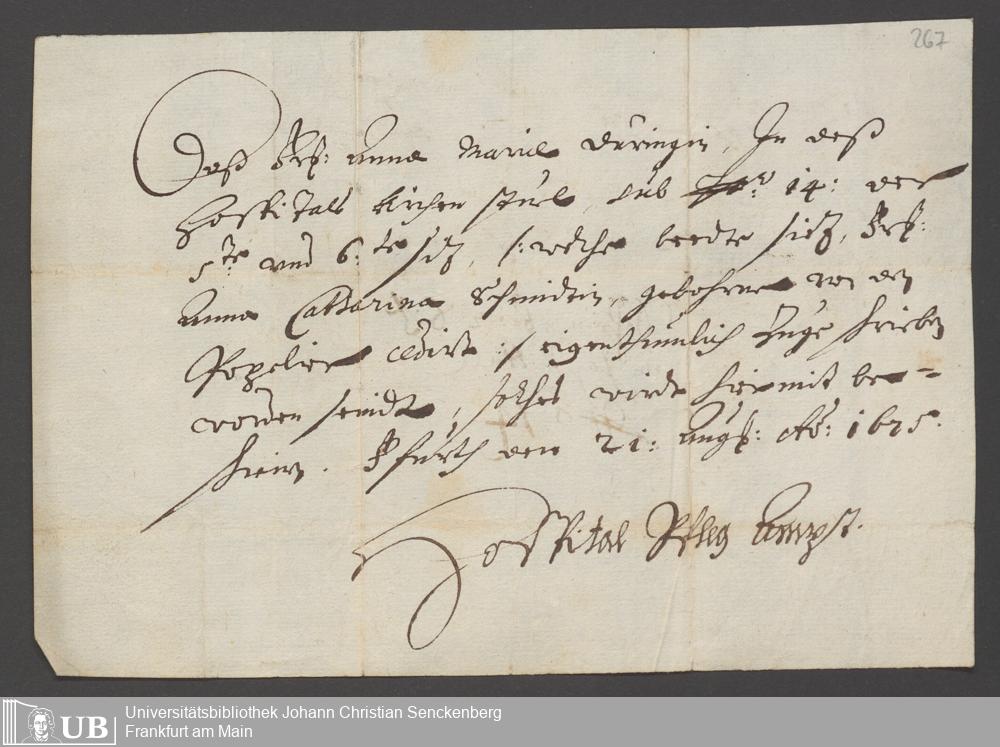 267
Daß Frf: Anna Maria Düringin, In deß
Hospitals Kirchen stuel, sub No: 14: der
5te und 6:te sitz, /: welche beede sitz, Frf:
Anna Catharina Schmidtin, gebohrne von den
Popelier cedirt :/ eigenthumblich zuge schrieben
worden seindt, solches wirdt hiermit be-
schein. Ffurth den 21: Augst: Ao: 1675.
Hospital Pfleg Ampt.
UB
Universitätsbibliothek Johann Christian Senckenberg
Frankfurt am Main